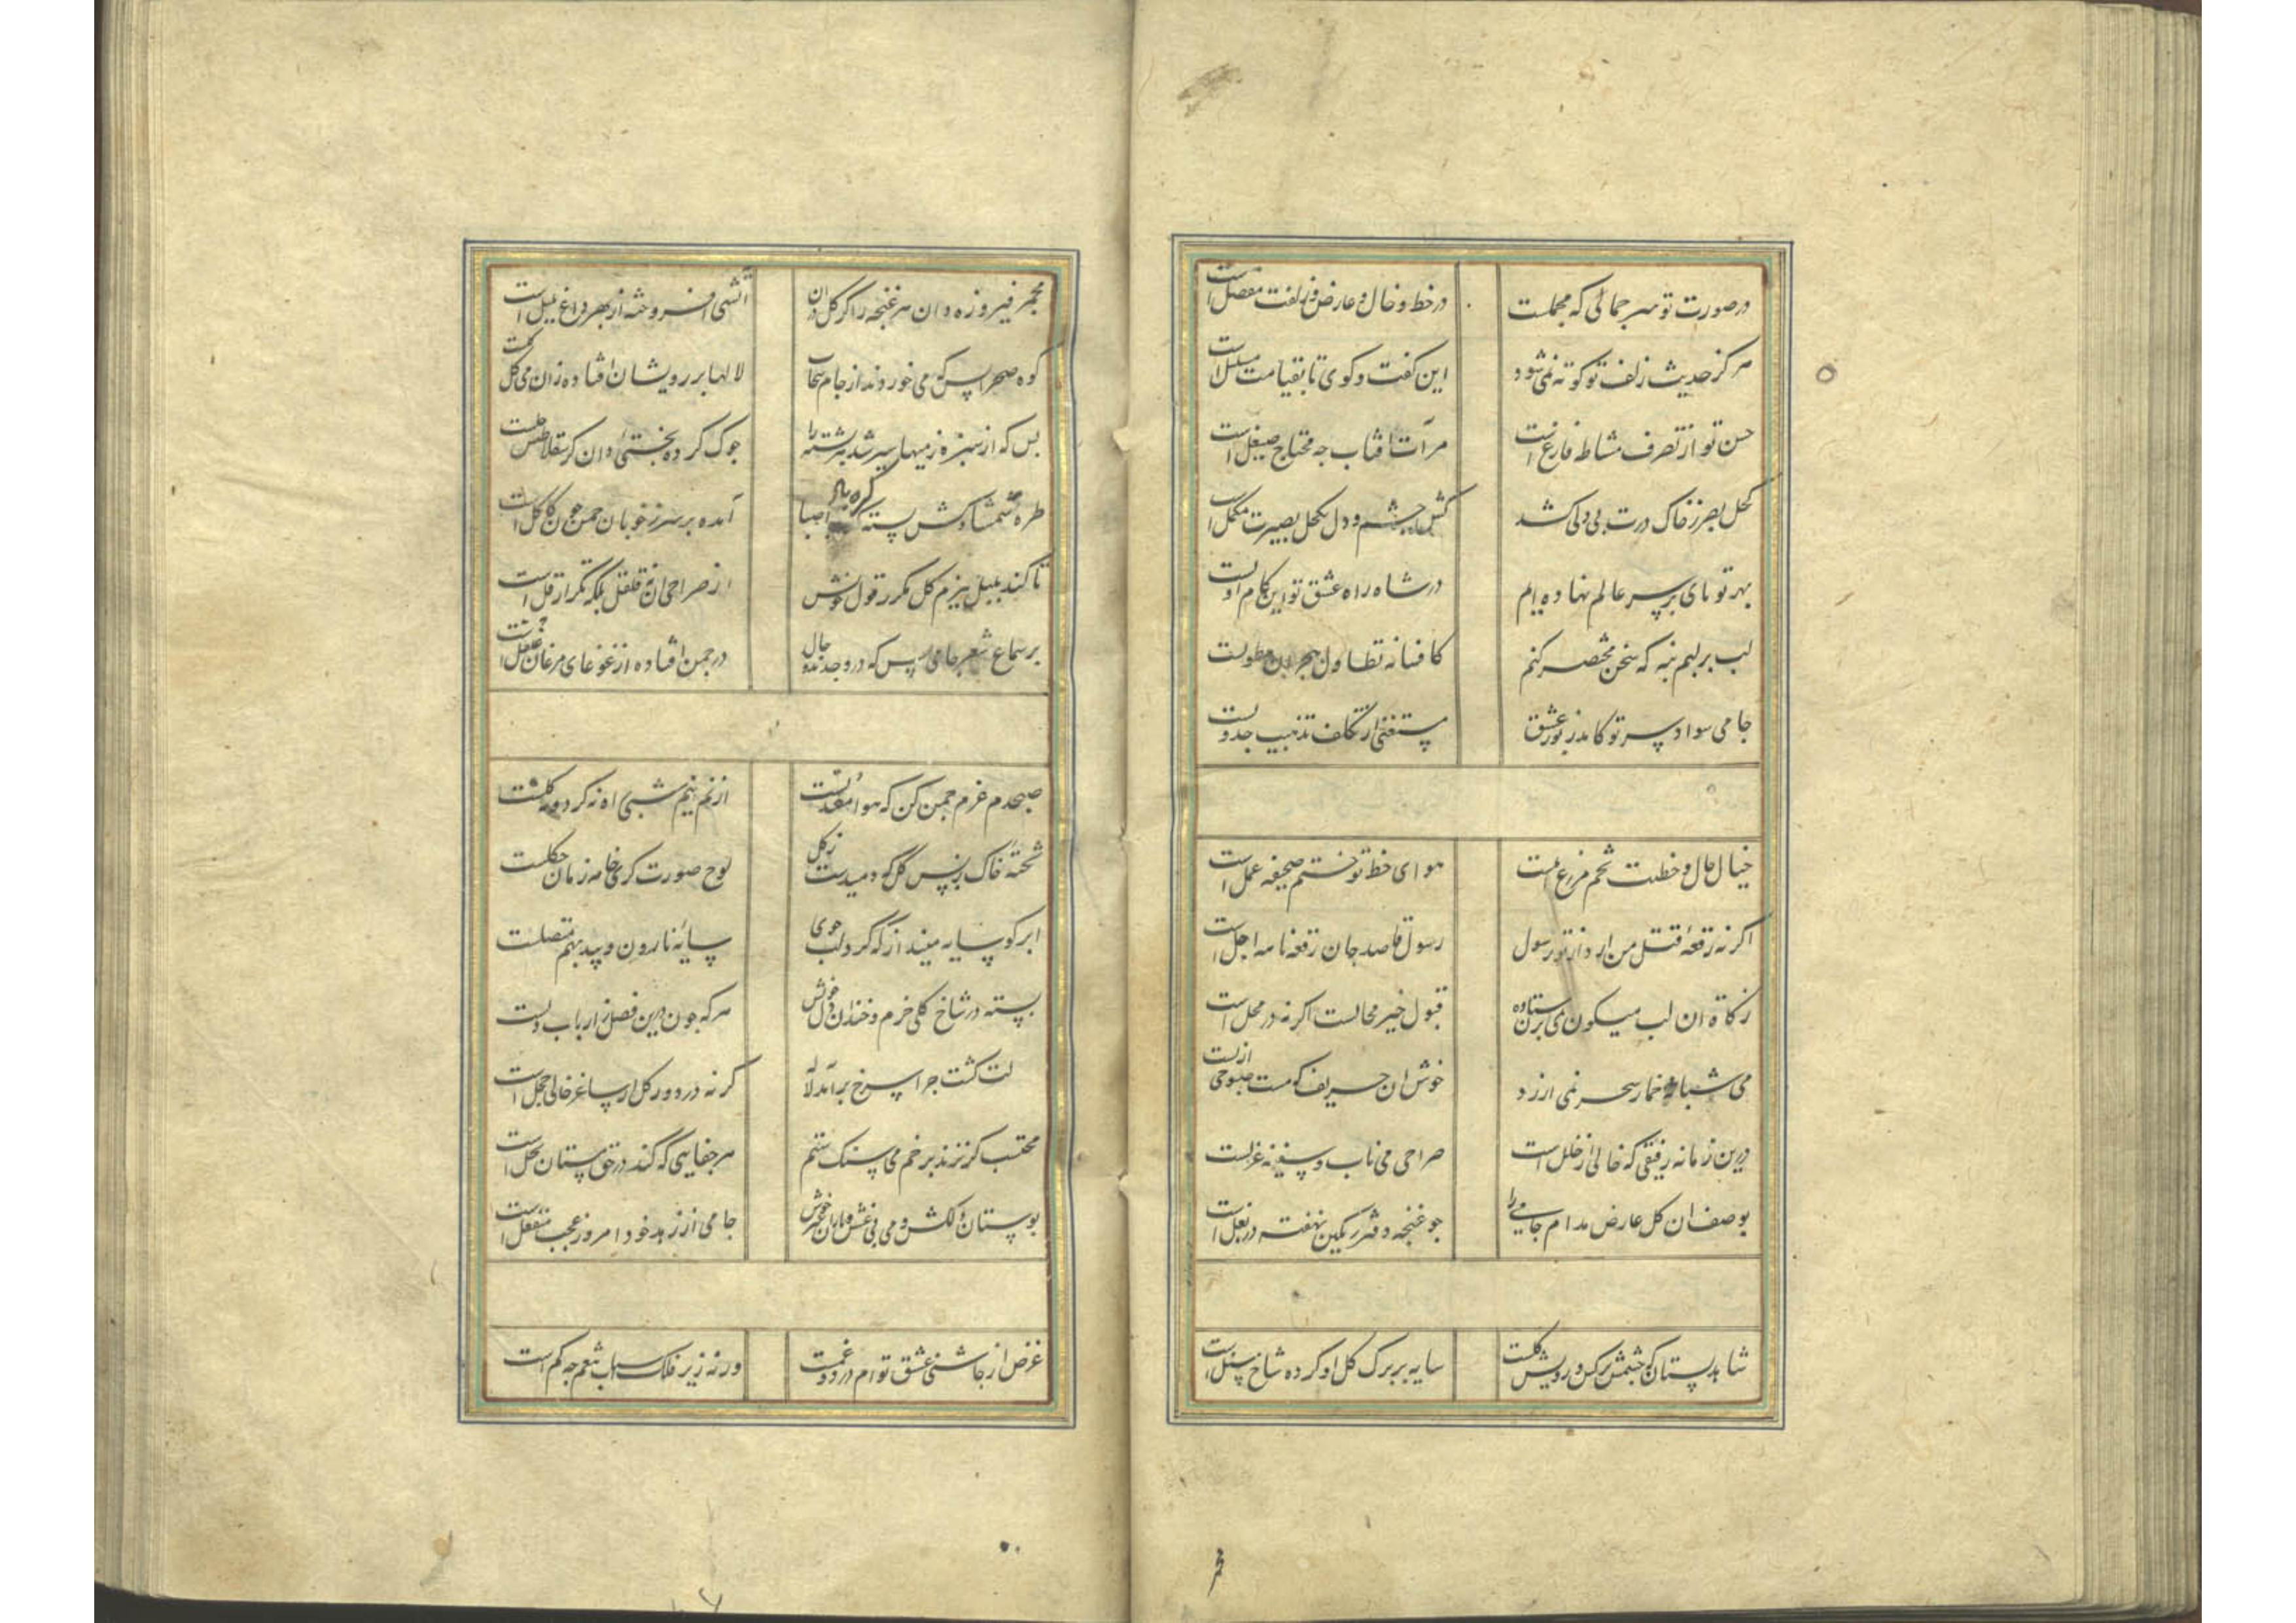 در صورت تو سر جمالی که مجملست در خط و خال و عارض و زلفت مفصل است
هرگز حدیث زلف تو کوته نمی شود این گفت و گوی تا بقیامت مسلسل است
حسن تو از تصرف مشاطه فارغ است مرآت آفتاب چه محتاج صیقل است
کحل بصر ز خاک درت بی دلی کشد کش چشم و دل بکحل بصیرت مکحل است
بهر تو پای بر سر عالم نهاده ایم در شاه راه عشق تو این کام اولست
لب بر لبم بنه که سخن مختصر کنم کافسانه تطاول هجران مطولست
جامی سواد تو کامد ز نور عشق مستغنی از تکلف تذهیب جدولست
خیال خال و خطت تخم مزرع املست هوای خط تو ختم صحیفه عمل است
اگر نه رقعه قتل من آرد از تو رسول رسول قاصد جان رقعه نامه اجل است
زکاة آن لب میگون می بر مستان ده قبول خیر محالست اگر نه در محل است
می شبانه خمار سحر نمی ارزد خوش آن حریف که مست صبوحی ازلست
درین زمانه رفیقی که خالی از خلل است صراحی می ناب و سفینه غزلست
بوصف آن گل عارض مدام جامی را چو غنچه دفتر رنگین نهفته در بغل است
شاهد بستان که چشمش نرگس و رویش گلست سایه بر برگ گل او کرده شاخ سنبل است
مجمر فیروزه دان هر غنچه را گر گل در آن آتشی افروخته از بهر داغ بلبل است
کوه صحرا بس که می خوردند از جام سحاب لالها بر رویشان افتاده زان می گل گلست
بس که از سبزه زمینها سر شد پشته را
طره شمشاد کش بسته گره باد صبا آمده بر سر ز خوبان چمن چون کاکل است
تا کند بلبل ببزم گل مکرر قول خوش از صراحی آن نه قلقل بلکه تکرار قل است
بر سماع شعر جامی بس که در وجدند و حال در چمن افتاده از غوغای مرغان غلغل است
صبحدم عزم چمن کن که هوا معتدلست از نم نیم شبی راه نه گرد و نه گلست
تخته خاک ز بس گل که دمیدست ز گل لوح صورت گری خامه زمان چکلست
ابر گو سایه میند از که گرد لب جوی سایه نارون و بید بهم متصلست
بسته در شاخ گلی خرم و خندان دل خویش هر که چون درین فصل ز ارباب دلست
لت گشت چرا سرخ برآمد لاله گر نه در دور گل از ساغر خالی خجل است
محتسب گر نزند بر خم می سنگ ستم هر جفایی که کند در حق مستان بحل است
بوستان دلکش و می بی غش و یاران خوش جامی از زهد خود امروز عجب منفعل است
غرض از چاشنی عشق توام درد و غمست ورنه زیر فلک اسباب تنعم چه کم است